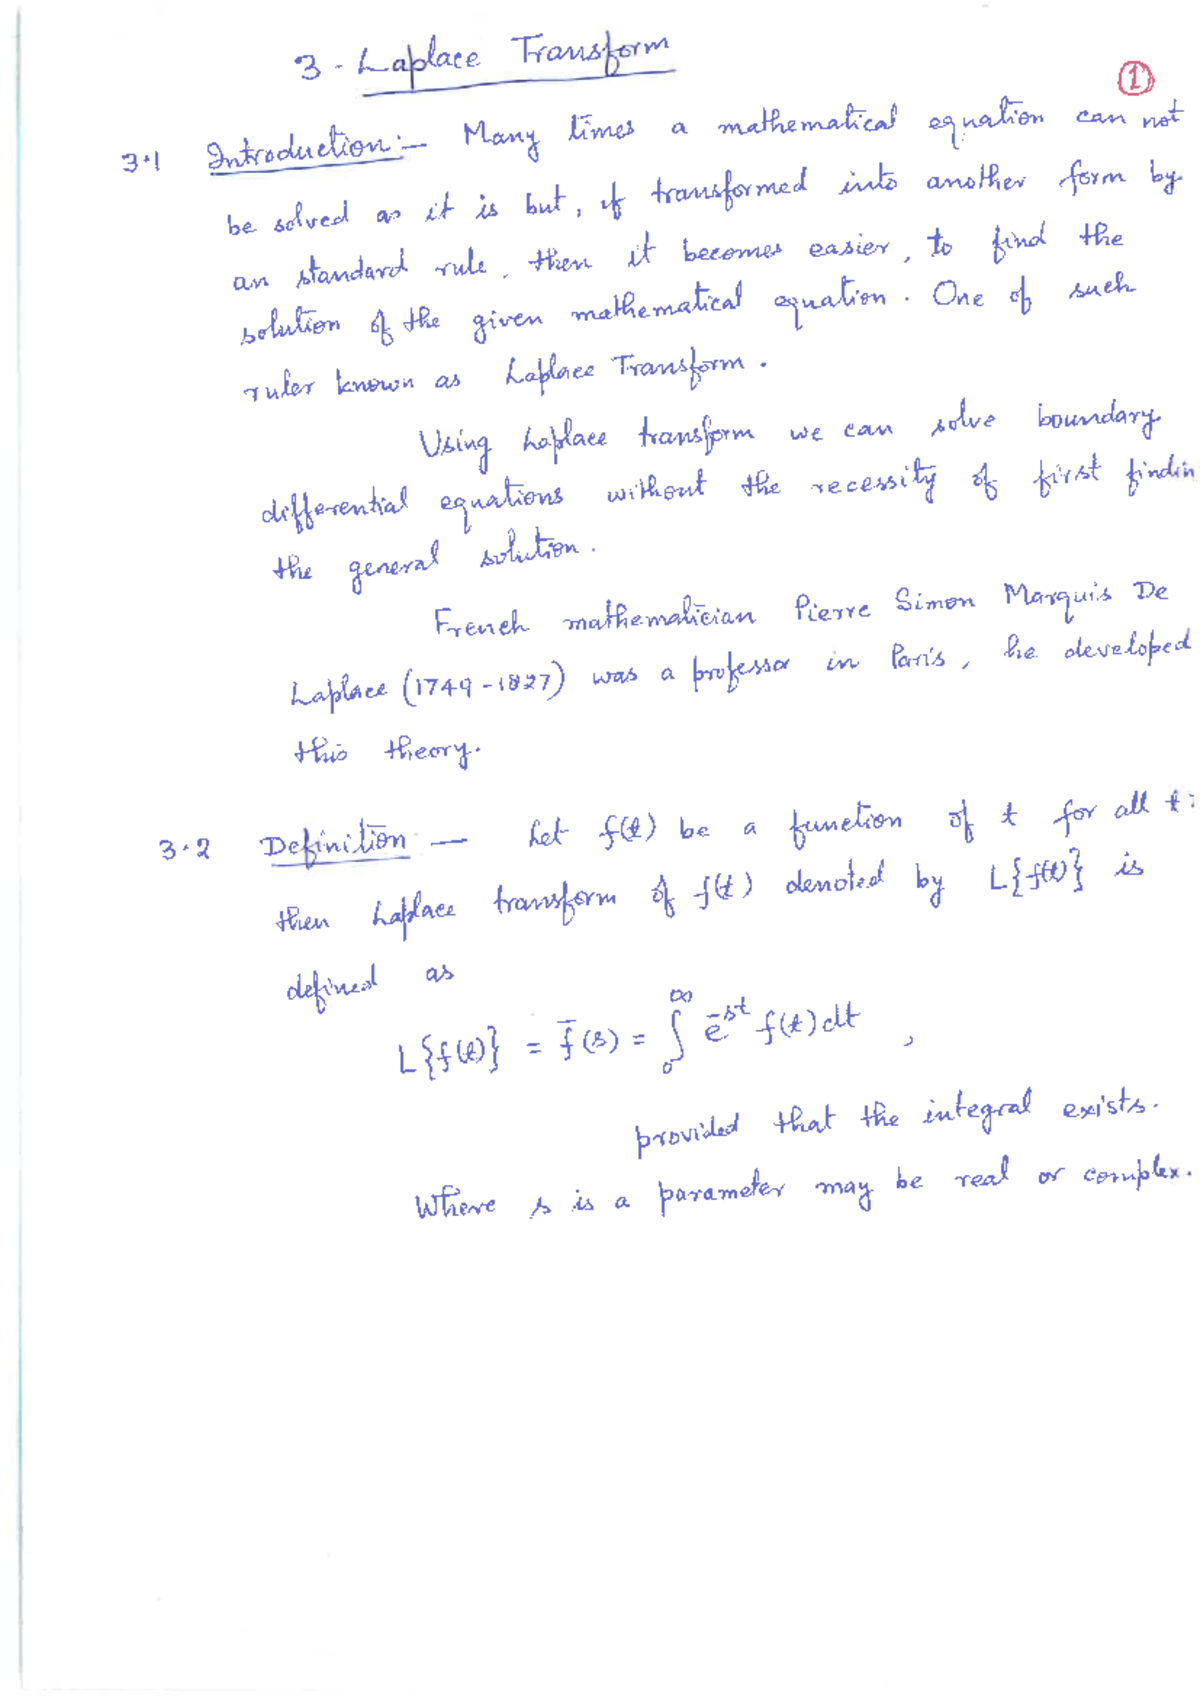 3 - Laplace Transform
①
3.1 Introduction:- Many times a mathematical equation can not
be solved as it is but, if transformed into another form by
an standard rule, then it becomes easier, to find the
solution of the given mathematical equation. One of such
ruler known as Laplace Transform.
Using Laplace transform we can solve boundary
differential equations without the recessity of first findin
the general solution.
French mathematician Pierre Simon Marquis De
Laplace (1749-1827) was a professor in Paris, he developed
this theory.
3.2 Definition — Let f(t) be a function of t for all t
then Laplace transform of f(t) denoted by L{f(t)} is
defined as
L{f(t)} = f̄(s) = ∫₀^∞ e^-st f(t) dt ,
provided that the integral exists.
Where s is a parameter may be real or complex.